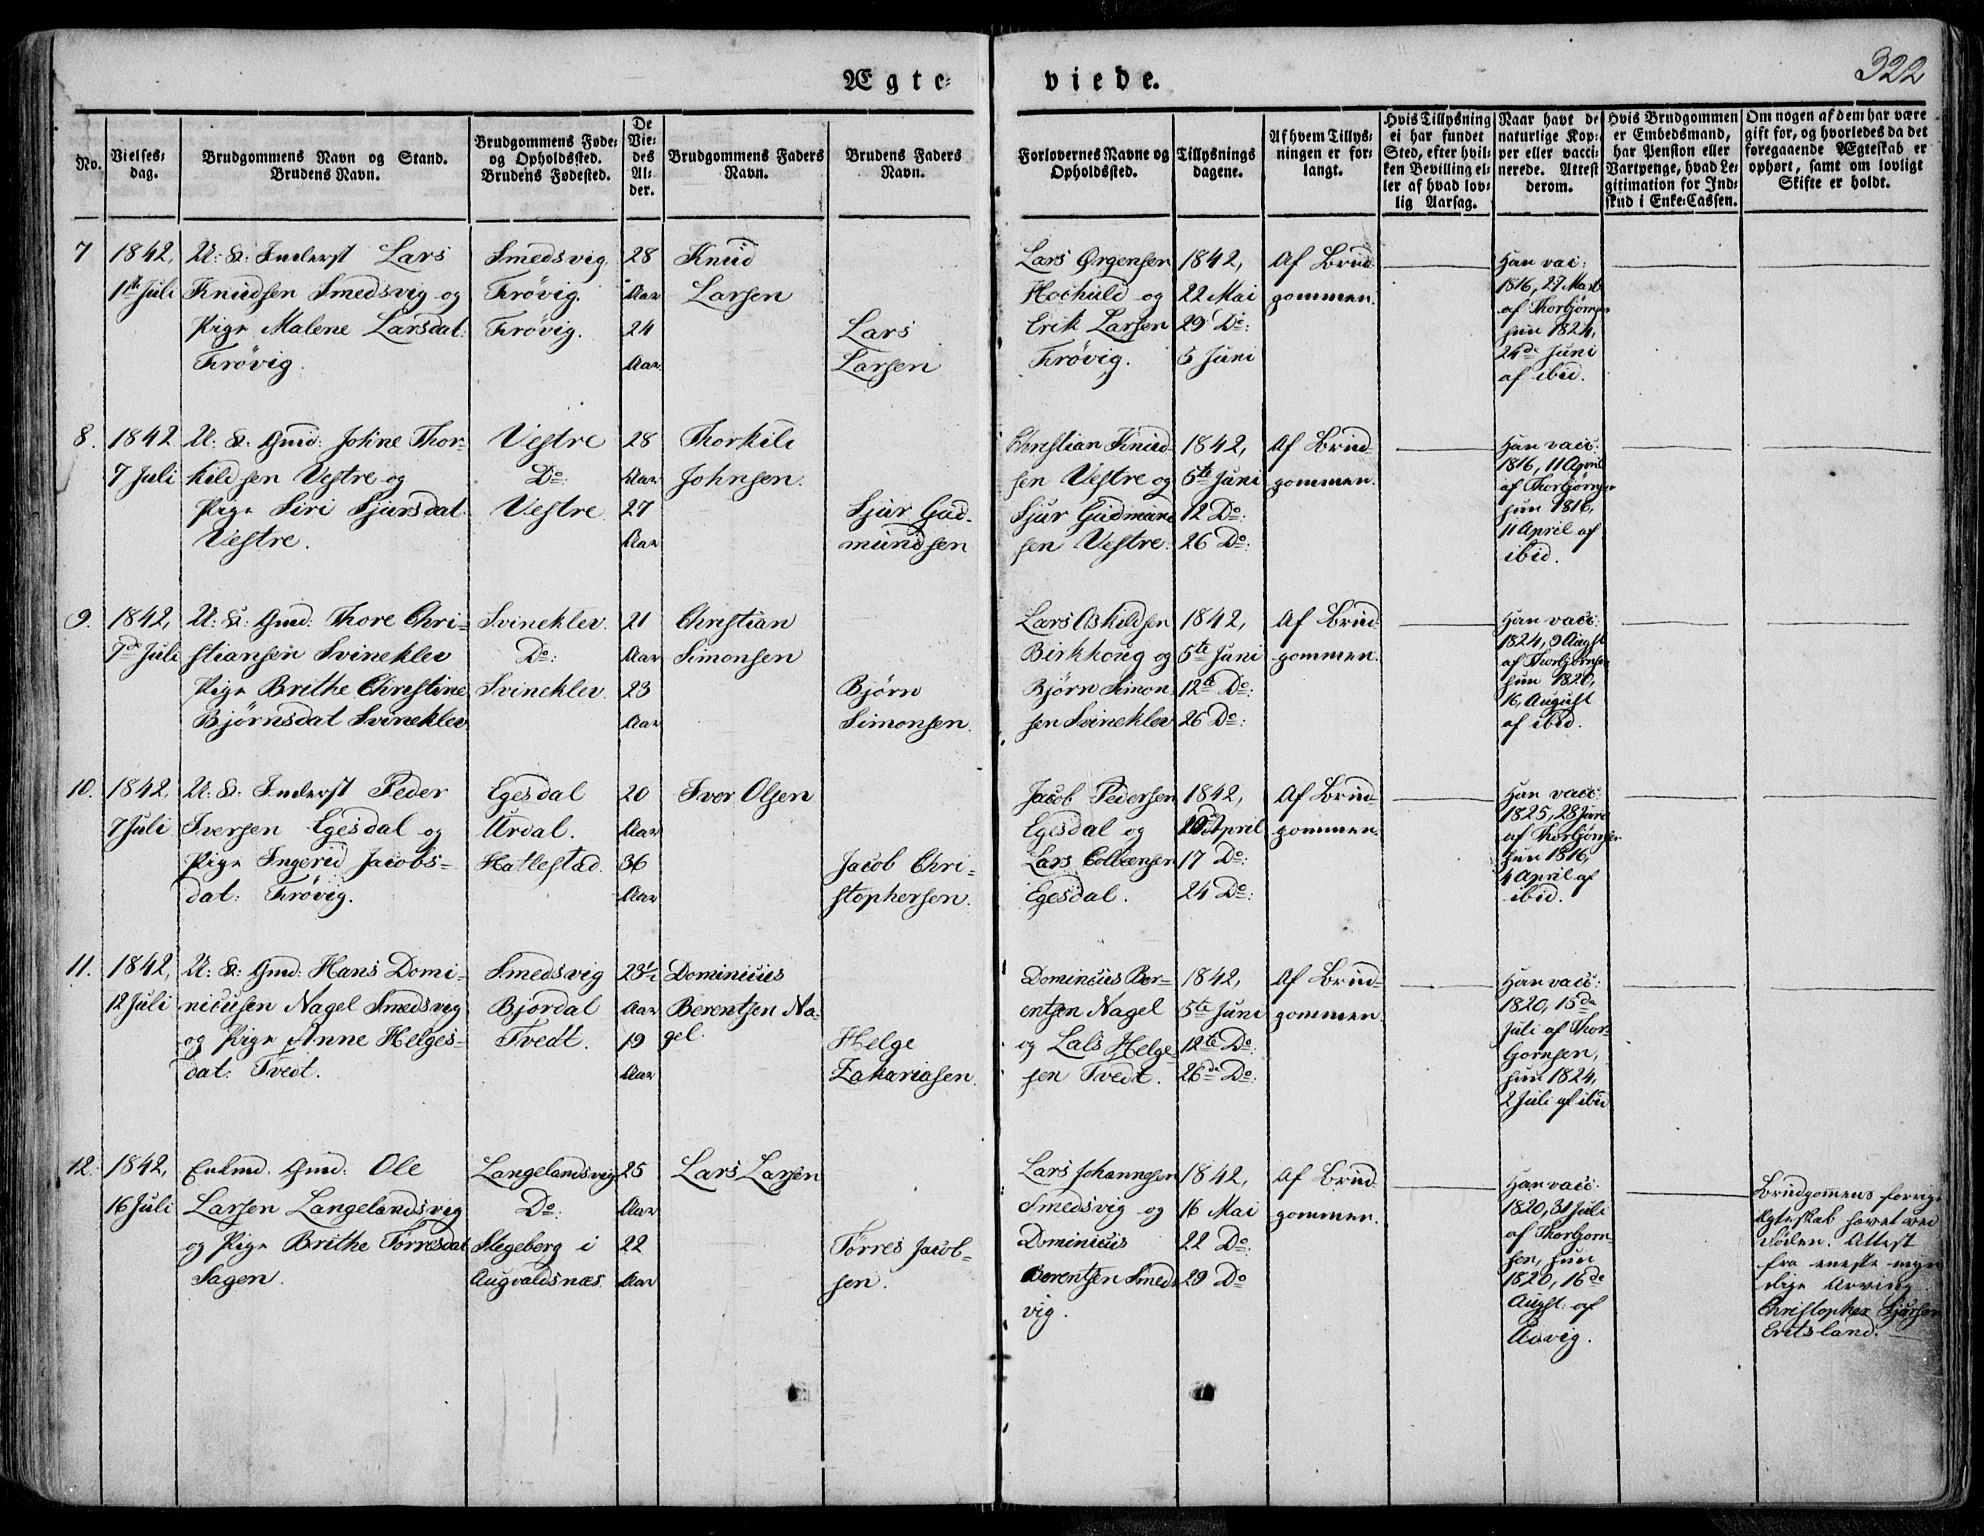 322
Ægte-
viede.
No.
Vielses-
dag.
Brudgommens Navn og Stand.
Brudens Navn.
Brudgommens Føde-
og Opholdssted.
Brudens Fødested.
De
Vie-
des
Al-
der.
Brudgommens Faders
Navn.
Brudens Faders
Navn.
Forlovernes Navne og
Opholdssted.
Tillysnings
dagene.
Af hvem Tillys-
ningen er for-
langt.
Hvis Tillysning
ei har fundet
Sted, efter hvil-
ken Bevilling el-
ler af hvad lov-
lig Aarsag.
Naar havt de
naturlige Kop-
per eller vacci-
nerede. Attest
derom.
Hvis Brudgommen
er Embedsmand,
har Pension eller
Vartpenge, hvad Le-
gitimation for Ind-
skud i Enke-Cassen.
Om nogen af dem har være
gift for, og hvorledes da det
foregaaende Ægteskab er
ophørt, samt om lovligt
Skifte er holdt.
7
1842,
1ste Juli
U: K: Inderst Lars
Knudsen Smedsvig og
Pige Malene Larsdat:
Frøvig.
Smedsvig
Frøvig.
Frøvig.
28
Aar
24
Aar
Knud
Larsen
Lars
Larsen
Lars Ørgensen
Hochuld og
Erik Larsen
Frøvig.
1842,
22 Mai
29 Do:
5 Juni
Af Brud-
gommen.
Han vac:
1816, 27 Marts
af Thorbjørnsen
hun 1824,
24de Juni
af ibid.
8.
1842
7 Juli
U: K: Gmd: Johne Thor-
kildsen Vestre og
Pige Siri Sjursdat:
Vestre.
Vestre
Do:
Vestre
28
Aar
27
Aar
Thorkild
Johnsen.
Sjur Gud-
mundsen
Christian Knud-
sen Vestre og
Sjur Gudmund
sen Vestre.
1842,
5te Juni
12 Do:
26 Do:
Af Brud-
gommen.
Han vacc:
1816, 11 April
af Thorbjørnsen
hun 1816,
11 April af
ibid.
9.
1842,
7de Juli
U: K: Gmd: Thore Chri-
stiansen Svineklev
Pige Brithe Christine
Bjørnsdat Svineklev
Svineklev.
Do:
Svineklev
21
Aar
23
Aar
Christian
Simonsen
Bjørn
Simonsen.
Lars Askildsen
Birkhoug og
Bjørn Simon-
sen Svineklev
1842,
5te Juni
12te Do:
26 Do:
Af Brud-
gommen.
Han vacc:
1824, 9 Augst
af Thorbjørnsen
hun 1820,
16, August
af ibid.
10.
1842,
7 Juli
U: K: Inderst Peder
Iversen Egesdal og
Pige Ingerid Jacobs-
dat: Frøvig.
Egesdal
Urdal.
Hatlestad
20
Aar
36
Aar
Iver Olsen
Jacob Chri-
stophersen.
Jacob Pedersen
Egesdal og
Lars Colbensen
Egesdal.
1842,
10 April
17 Do:
24 Do:
Af Brud-
gommen.
Han vacc:
1825, 28 Juni
af Thorbjørnsen
hun 1816,
4 April af
ibid.
11.
1842,
12 Juli
U: K: Gmd: Hans Domi-
nicusen Nagel Smedsvig
og Pige Anne Helges-
dat: Tvedt.
Smedsvig
Bjordal
Tvedt.
23½
Aar
19
Aar
Dominicus
Berentsen Na-
gel.
Helge
Zakariasen.
Dominicus Ber-
entsen Nagel
og Lals Helge-
sen Tvedt.
1842,
5te Juni
12te Do:
26de Do:
Af Brud-
gommen.
Han vacc:
1820, 15de
Juli af Thor-
bjornsen,
hun 1824,
2 Juli af ibid
12.
1842,
16 Juli
Enkmd. Gmd: Ole
Larsen Langelandsvig
og Pige Brithe Tørresdat
Sagen.
Langelandsvig
Do:
Stegeberg i
Augvaldsnæs.
25
Aar
22
Aar
Lars Larsen
Tørres Jacob-
sen.
Lars Johannesen
Smedsvig og
Dominicus
Berentsen Smeds
vig.
1842,
16 Mai
22 Do:
29 Do
Af Brud-
gommen.
Han vacc:
1820, 31 Juli
af Thorbjorn-
sen, hun
1820, 16de
Augst: af
Aavig.
Brudgomens forrige
Ægteskab hævet ved
Døden. Attest
fra eneste myn
dige Arving
Christopher Sjursen
Eritsland.